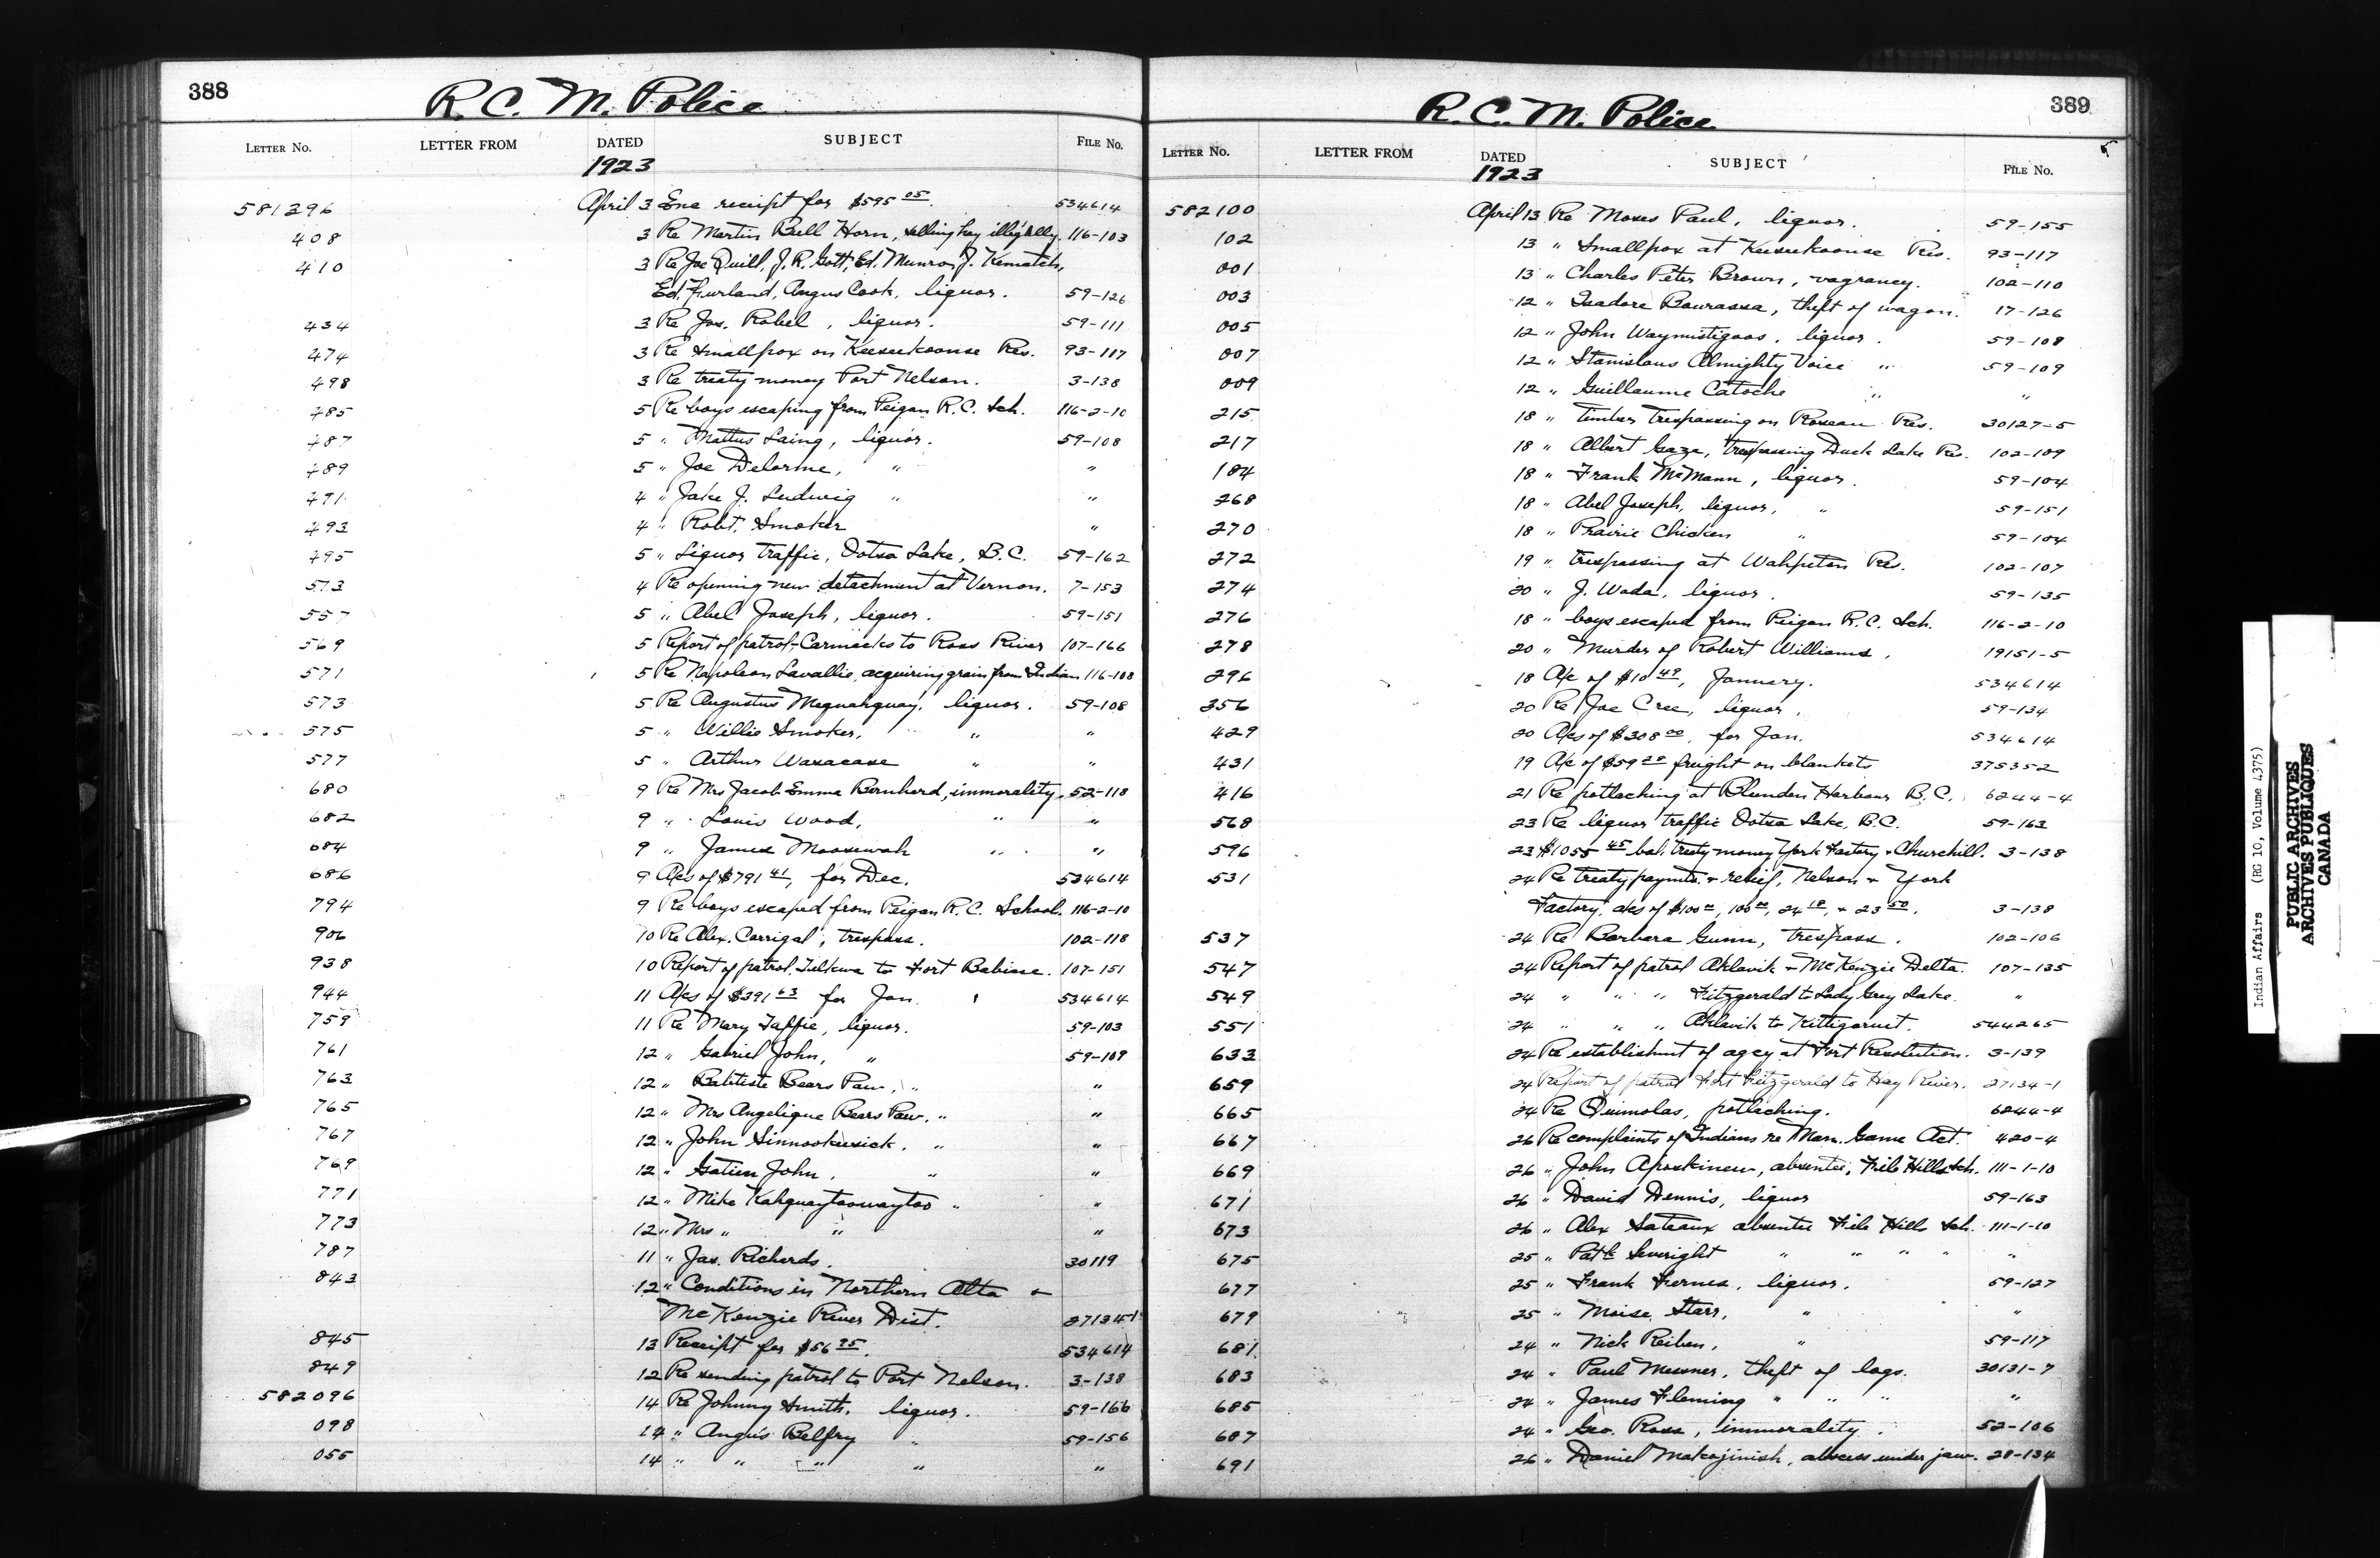 388
R. C. M. Police
LETTER No. LETTER FROM DATED SUBJECT FILE No.
1923
581296 April 3 Enc receipt for $595 05. 534614
408 3 Re Martin Bull Horn, selling hay illigally. 116-103
410 3 Re Joe Quill, J. R. Gott, Ed. Munro, J. Kematch,
Ed. Furland, Angus Cook, liquor. 59-126
434 3 Re Jos. Robel, liquor. 59-111
474 3 Re Smallpox on Keeseekoonse Res. 93-117
498 3 Re treaty money Port Nelson. 3-138
485 5 Re boys escaping from Peigan R. C. Sch. 116-2-10
487 5 " Mattus Laing, liquor. 59-108
489 5 " Joe Delorme, " "
491 4 " Jake J. Ludwig " "
493 4 " Robt. Smoker "
495 5 " Liquor traffic, Ootsa Lake, B.C. 59-162
513 4 Re opening new detachment at Vernon. 7-153
557 5 " Abel Joseph, liquor. 59-151
569 5 Report of patrol-Carmacks to Ross River 107-166
571 5 Re Napoleon Lavallie, acquiring grain from Indian 116-108
573 5 Re Augustus Mequahquay, liquor. 59-108
575 5 " Willie Smoker, " "
577 5 " Arthur Wasacase " "
680 9 Re Mrs Jacob Emma Bernherd, immorality. 52-118
682 9 " Louis Wood, " "
684 9 " James Moosewah " "
686 9 A/cs of $791 41, for Dec. 534614
794 9 Re boys escaped from Peigan R. C. School. 116-2-10
906 10 Re Alex. Carrigal, trespass. 102-118
938 10 Report of patrol, Telkwa to Fort Babine. 107-151
944 11 A/cs of $391 63 for Jan. 534614
759 11 Re Mary Taffie, liquor. 59-103
761 12 " Gabriel John, " 59-109
763 12 " Babtiste Bears Paw, " "
765 12 " Mrs Angelique Bears Paw, " "
767 12 " John Sinnookeesick, " "
769 12 " Gatien John, " "
771 12 " Mike Kahquaytoowaytoo " "
773 12 " Mrs " " "
787 11 " Jas. Richards. 30119
843 12 " Conditions in Northern Alta &
McKenzie River Dist. 27134-1
845 13 Receipt for $56 25. 534614
849 12 Re sending patrol to Port Nelson. 3-138
582096 14 Re Johnny Smith, liquor. 59-166
098 14 " Angus Belfry " 59-156
055 14 " " " " "
389
R. C. M. Police
LETTER No. LETTER FROM DATED SUBJECT FILE No.
1923
582100 April 13 Re Moses Paul, liquor. 59-155
102 13 " Smallpox at Keeseekoonse Res. 93-117
001 13 " Charles Peter Brown, vagrancy. 102-110
003 12 " Isadore Bourassa, theft of wagon. 17-126
005 12 " John Waymistigoos, liquor. 59-108
007 12 " Stanislaus Almighty Voice " 59-109
009 12 " Guillaume Catoche " "
215 18 " timber trespassing on Roseau Res. 30127-5
217 18 " Albert Gaze, trespassing Duck Lake Res. 102-109
184 18 " Frank McMann, liquor. 59-104
268 18 " Abel Joseph, liquor, " 59-151
270 18 " Prairie Chicken " 59-104
272 19 " trespassing at Wahpeton Res. 102-107
274 20 " J. Wada, liquor. 59-135
276 18 " boys escaped from Peigan R. C. Sch. 116-2-10
278 20 " Murder of Robert Williams, 19151-5
296 18 A/c of $10 49, January. 534614
356 20 Re Joe Cree, liquor, 59-134
429 20 A/cs of $308 00, for Jan. 534614
431 19 A/c of $59 20 freight on blankets 375352
416 21 Re potlaching at Blunden Harbour B.C. 6244-4
568 23 Re liquor traffic Ootsa Lake, B.C. 59-163
596 23 $1055 45 bal. treaty money York Factory & Churchill. 3-138
531 24 Re treaty paymts. & relief, Nelson & York
Factory, a/cs of $100 00, 100 00, 24 18, & 23 50. 3-138
537 24 Re Barbara Gunn, trespass. 102-106
547 24 Report of patrol Aklavik & McKenzie Delta. 107-135
549 24 " " " Fitzgerald to Lady Grey Lake. "
551 24 " " " Aklavik to Kittigaruit. 544265
633 24 Re establishmt of agcy at Fort Resolution. 3-139
659 24 Report of patrol Fort Fitzgerald to Hay River. 27134-1
665 24 Re Quimolas, potlaching. 6244-4
667 26 Re complaints of Indians re Man. Game Act. 420-4
669 26 " John Aposkinew, absentee, File Hills Sch. 111-1-10
671 26 " David Dennis, liquor 59-163
673 26 " Alex Sateaux absentee File Hills Sch. 111-1-10
675 25 " Patk Severight " " " " "
677 25 " Frank Fernes, liquor. 59-127
679 25 " Moise Starr, " "
681 24 " Nick Reiben, " 59-117
683 24 " Paul Messner, theft of logs. 30131-7
685 24 " James Fleming " " " "
687 24 " Geo. Ross, immorality. 52-106
691 26 " Daniel Matcojinish, abscess under jaw. 28-134
Indian Affairs (RG 10, Volume 4375)
PUBLIC ARCHIVES
ARCHIVES PUBLIQUES
CANADA